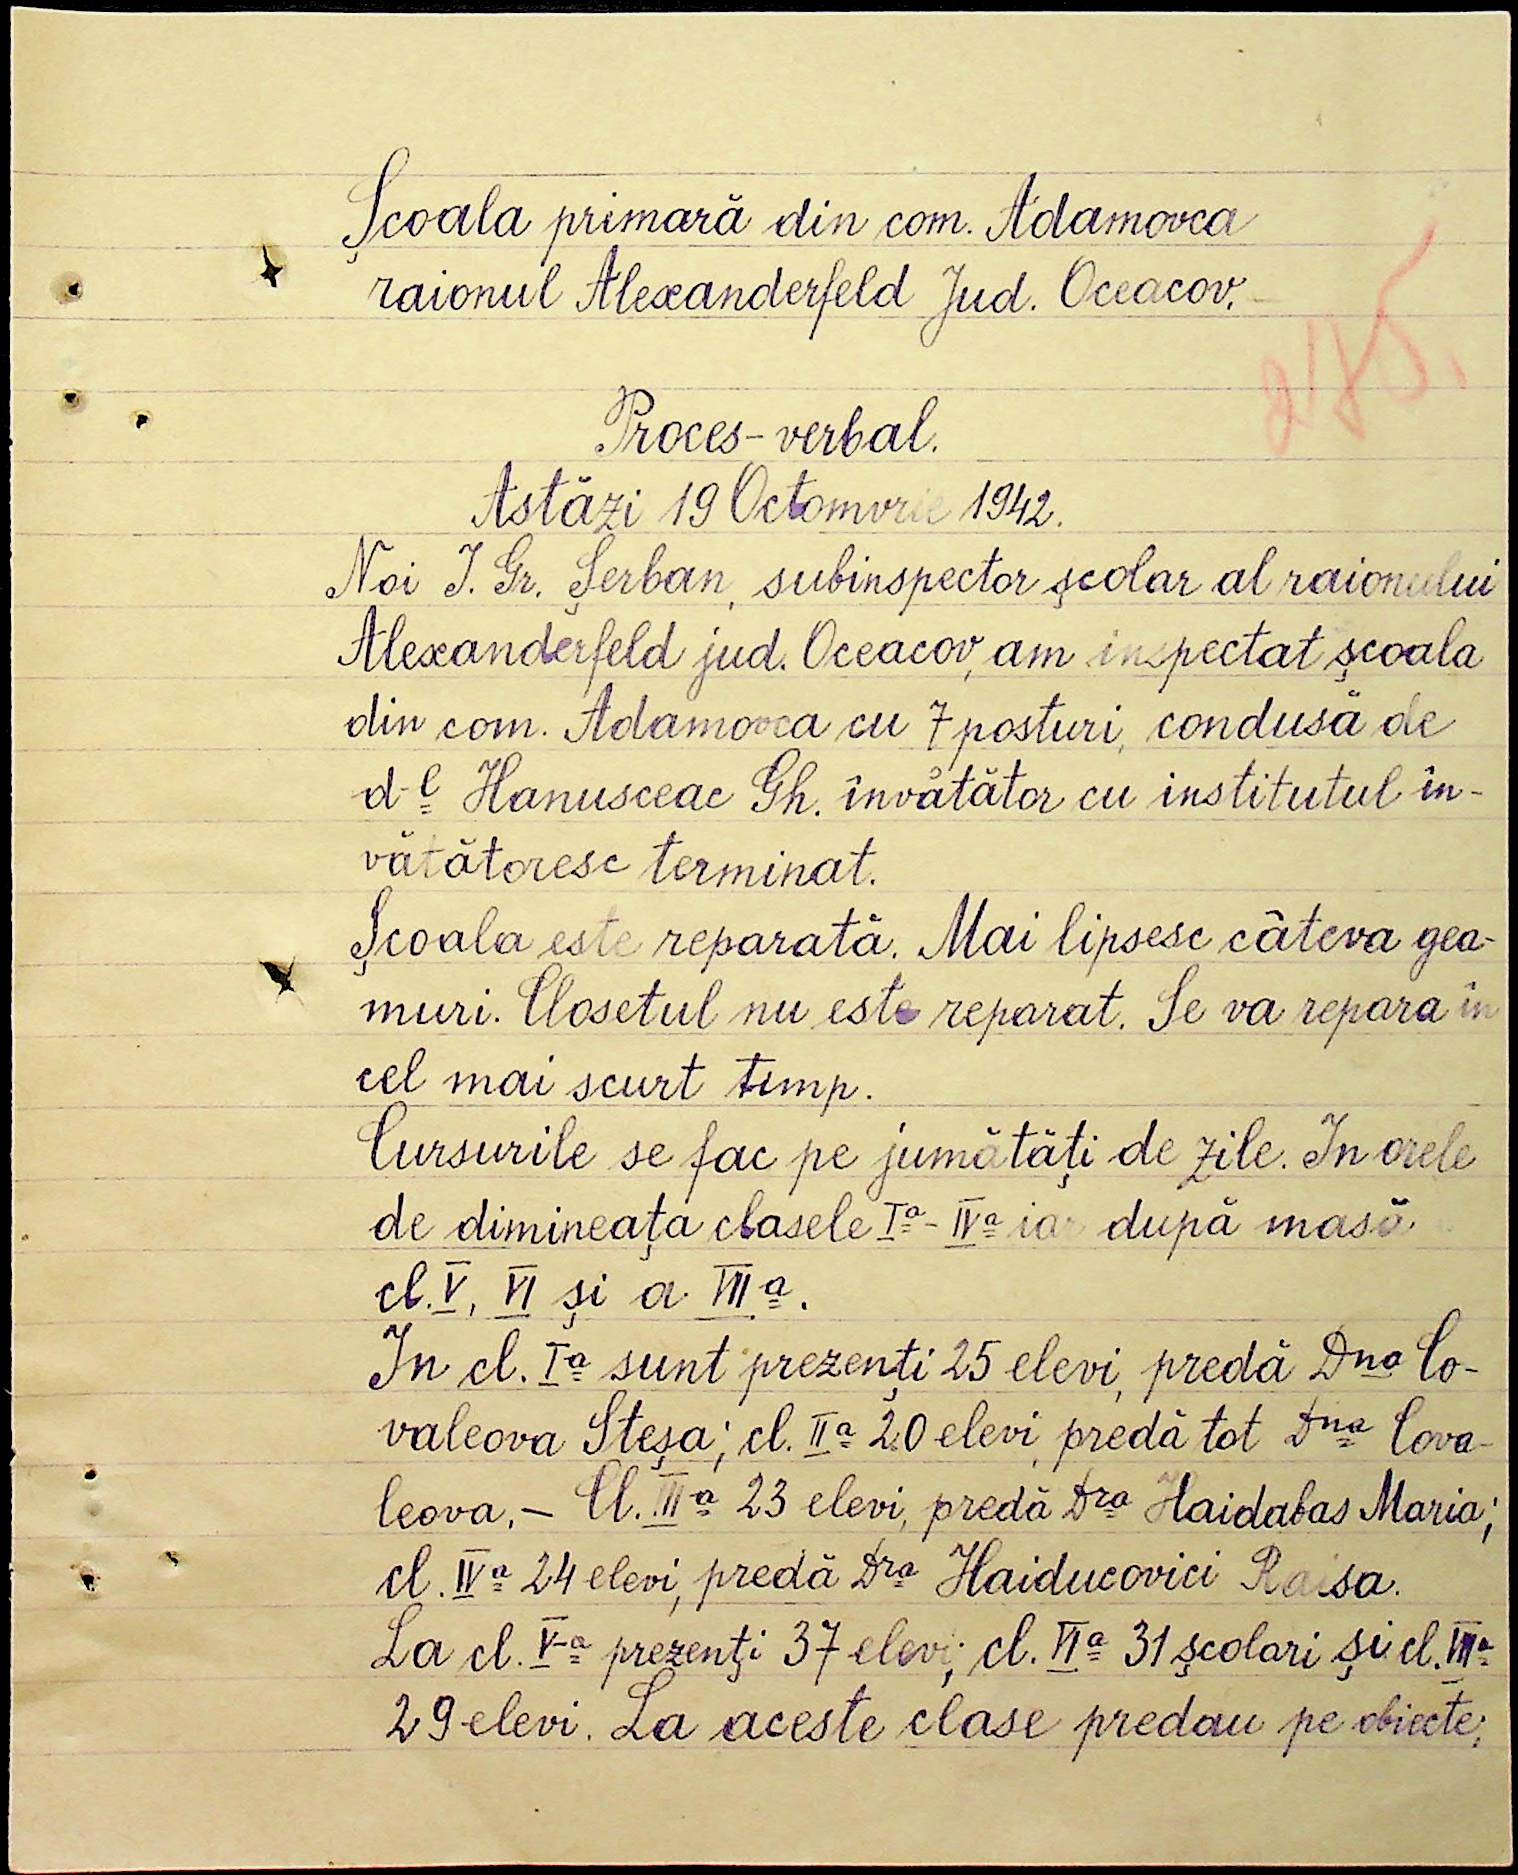 Școala primară din com. Adamovca
raionul Alexanderfeld Jud. Oceacov.
275.
Proces-verbal.
Astăzi 19 Octomvrie 1942.
Noi I. Gr. Șerban, subinspector școlar al raionului
Alexanderfeld jud. Oceacov, am inspectat școala
din com. Adamovca cu 7 posturi, condusă de
d-l Hanusceac Gh. învătător cu institutul în-
vătătoresc terminat.
Școala este reparată. Mai lipsesc câteva gea-
muri. Closetul nu este reparat. Se va repara în
cel mai scurt timp.
Cursurile se fac pe jumătăți de zile. In orele
de dimineața clasele I a - IV a iar după masă
cl. V, VI și a VII a.
In cl. I a sunt prezenți 25 elevi, predă Dna Co-
valeova Steșa; cl. II a 20 elevi, predă tot Dna Cova-
leova. - Cl. III a 23 elevi, predă Dra Haidabas Maria;
cl. IV a 24 elevi, predă Dra Haiducovici Raisa.
La cl. V-a prezenți 37 elevi; cl. VI a 31 școlari și cl. VII a
29 elevi. La aceste clase predau pe obiecte;